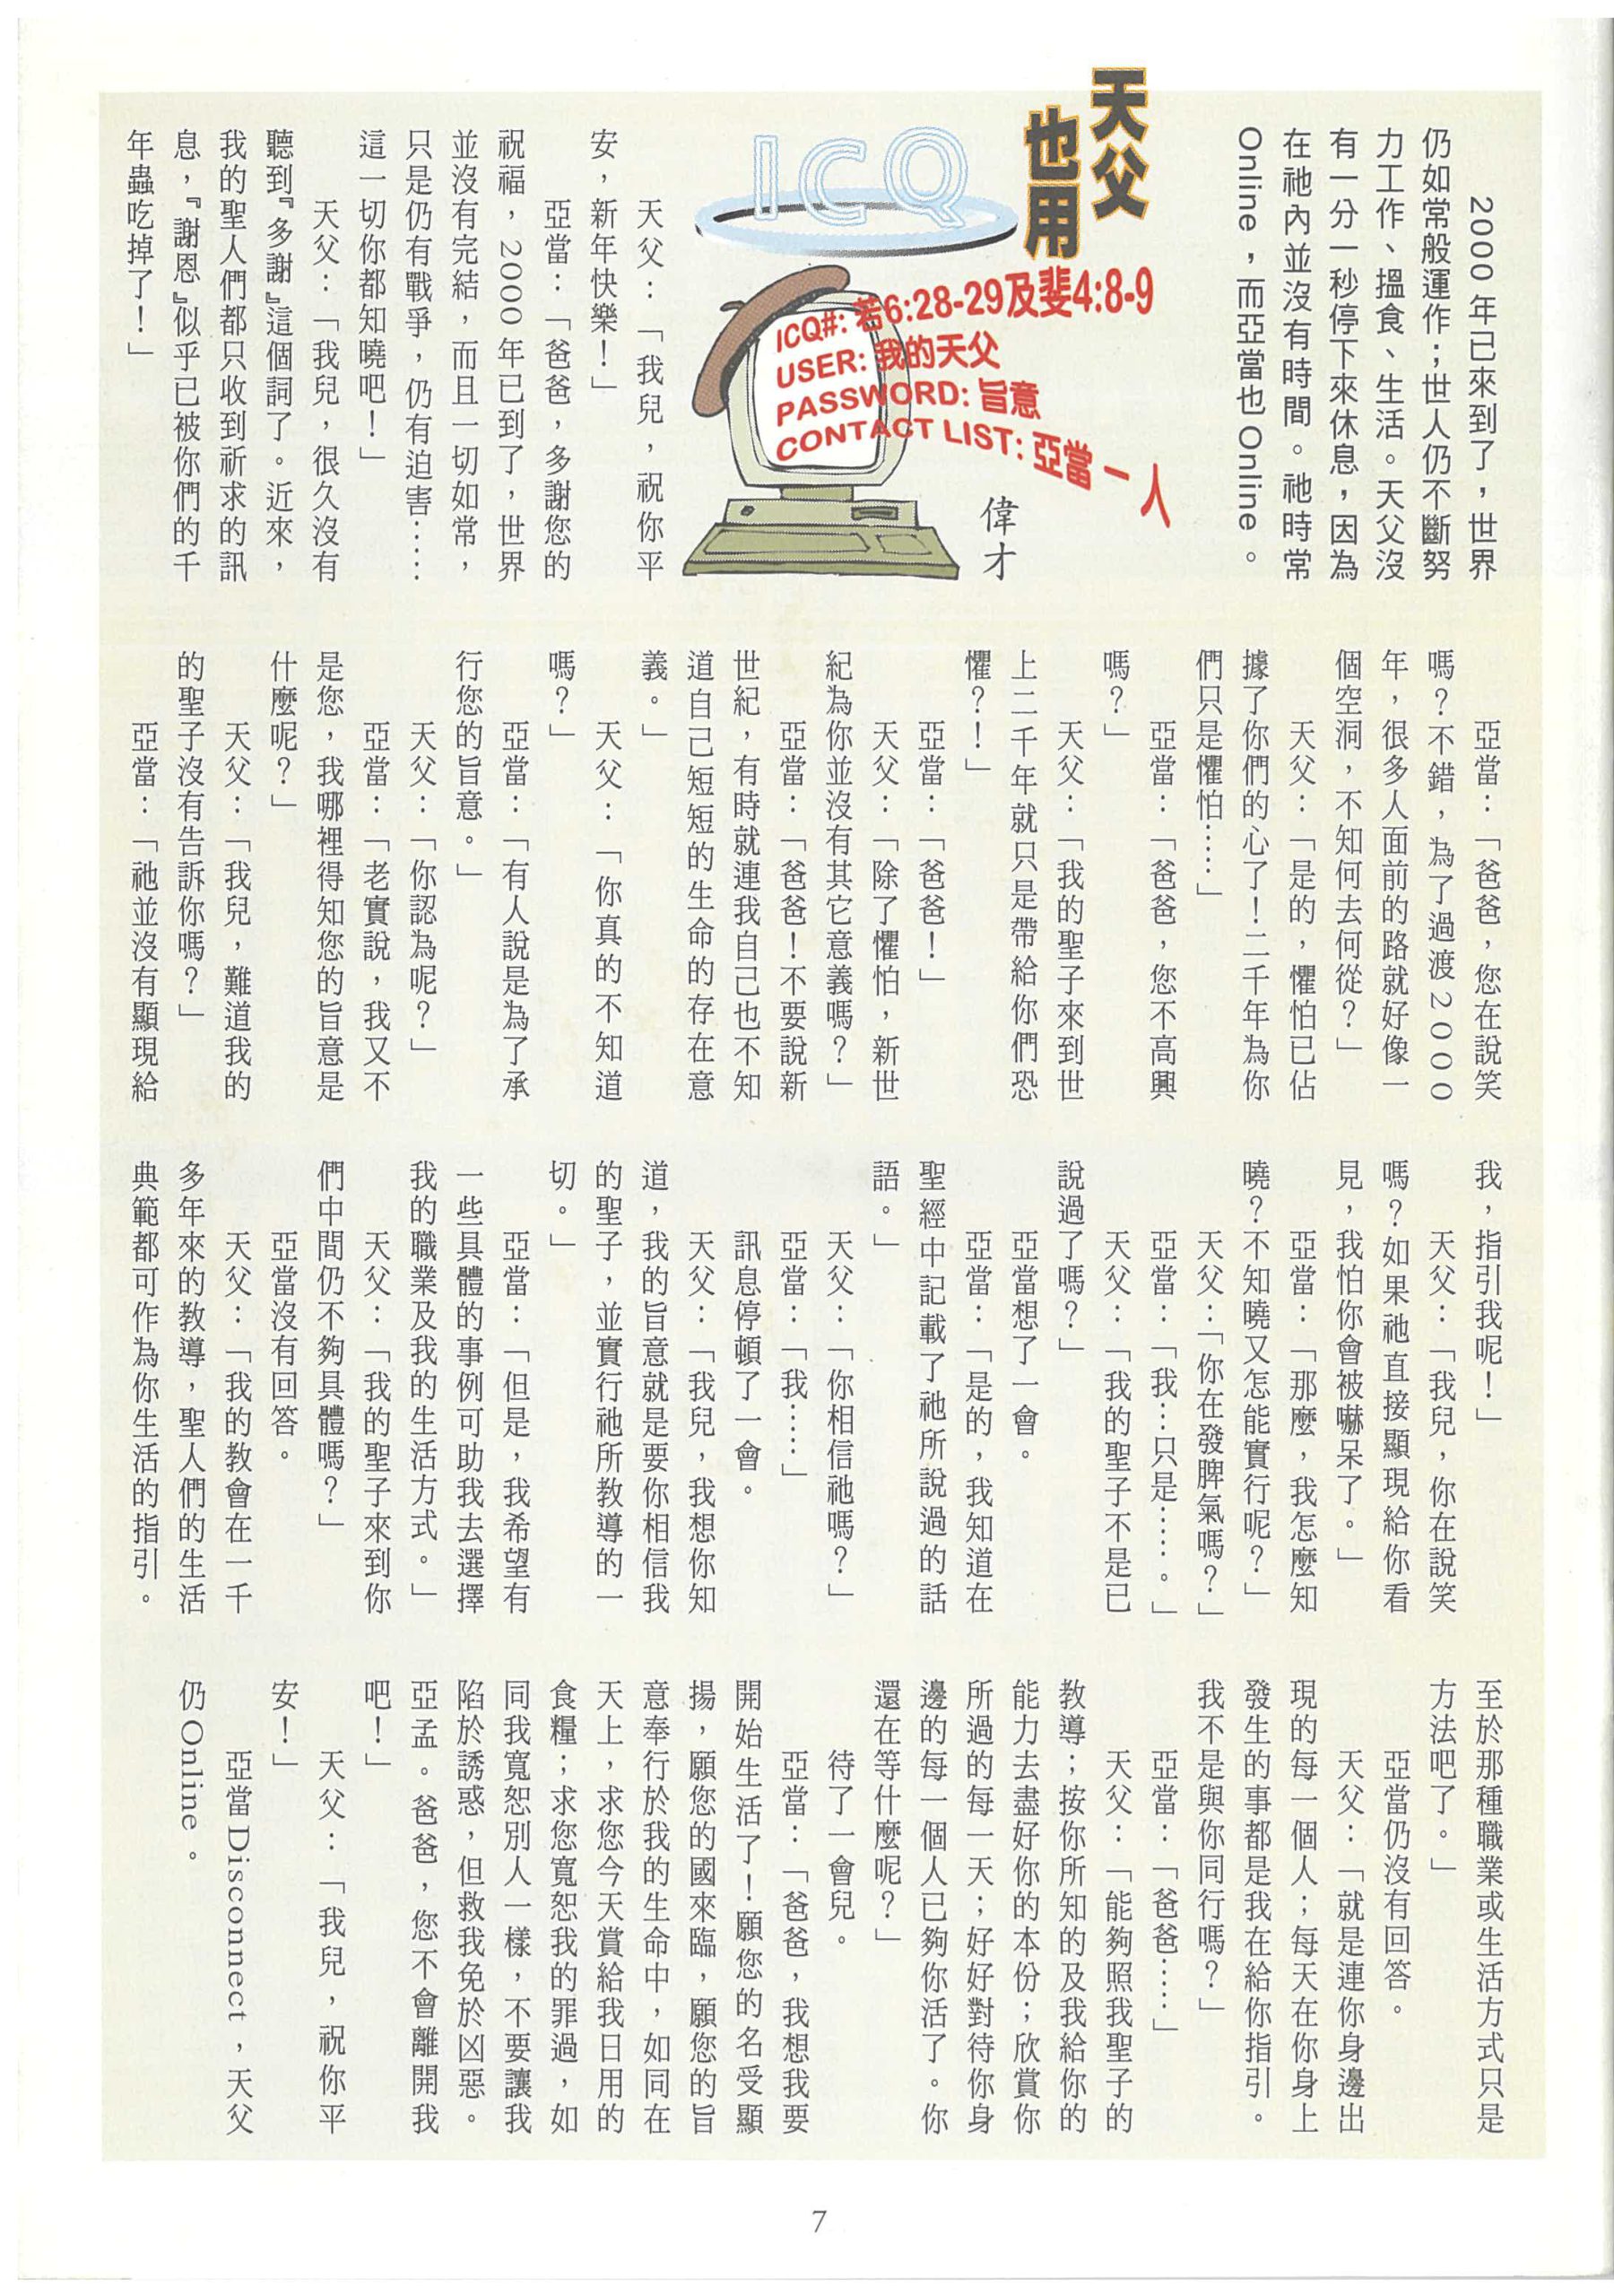 天父
也用
ICQ
ICQ#: 若6:28-29及斐4:8-9
USER: 我的天父
PASSWORD: 旨意
CONTACT LIST: 亞當一人
偉才
2000年已來到了，世界
仍如常般運作；世人仍不斷努
力工作、搵食、生活。天父沒
有一分一秒停下來休息，因為
在祂內並沒有時間。祂時常
Online，而亞當也Online。
天父：「我兒，祝你平
安，新年快樂！」
亞當：「爸爸，多謝您的
祝福，2000年已到了，世界
並沒有完結，而且一切如常，
只是仍有戰爭，仍有迫害……
這一切你都知曉吧！」
天父：「我兒，很久沒有
聽到『多謝』這個詞了。近來，
我的聖人們都只收到祈求的訊
息，『謝恩』似乎已被你們的千
年蟲吃掉了！」
亞當：「爸爸，您在說笑
嗎？不錯，為了過渡2000
年，很多人面前的路就好像一
個空洞，不知何去何從？」
天父：「是的，懼怕已佔
據了你們的心了！二千年為你
們只是懼怕……」
亞當：「爸爸，您不高興
嗎？」
天父：「我的聖子來到世
上二千年就只是帶給你們恐
懼？！」
亞當：「爸爸！」
天父：「除了懼怕，新世
紀為你並沒有其它意義嗎？」
亞當：「爸爸！不要說新
世紀，有時就連我自己也不知
道自己短短的生命的存在意
義。」
天父：「你真的不知道
嗎？」
亞當：「有人說是為了承
行您的旨意。」
天父：「你認為呢？」
亞當：「老實說，我又不
是您，我哪裡得知您的旨意是
什麼呢？」
天父：「我兒，難道我的
的聖子沒有告訴你嗎？」
亞當：「祂並沒有顯現給
我，指引我呢！」
天父：「我兒，你在說笑
嗎？如果祂直接顯現給你看
見，我怕你會被嚇呆了。」
亞當：「那麼，我怎麼知
曉？不知曉又怎能實行呢？」
天父：「你在發脾氣嗎？」
亞當：「我…只是……。」
天父：「我的聖子不是已
說過了嗎？」
亞當想了一會。
亞當：「是的，我知道在
聖經中記載了祂所說過的話
語。」
天父：「你相信祂嗎？」
亞當：「我……」
訊息停頓了一會。
天父：「我兒，我想你知
道，我的旨意就是要你相信我
的聖子，並實行祂所教導的一
切。」
亞當：「但是，我希望有
一些具體的事例可助我去選擇
我的職業及我的生活方式。」
天父：「我的聖子來到你
們中間仍不夠具體嗎？」
亞當沒有回答。
天父：「我的教會在一千
多年來的教導，聖人們的生活
典範都可作為你生活的指引。
至於那種職業或生活方式只是
方法吧了。」
亞當仍沒有回答。
天父：「就是連你身邊出
現的每一個人；每天在你身上
發生的事都是我在給你指引。
我不是與你同行嗎？」
亞當：「爸爸……」
天父：「能夠照我聖子的
教導；按你所知的及我給你的
能力去盡好你的本份；欣賞你
所過的每一天；好好對待你身
邊的每一個人已夠你活了。你
還在等什麼呢？」
待了一會兒。
亞當：「爸爸，我想我要
開始生活了！願您的名受顯
揚，願您的國來臨，願您的旨
意奉行於我的生命中，如同在
天上，求您今天賞給我日用的
食糧；求您寬恕我的罪過，如
同我寬恕別人一樣，不要讓我
陷於誘惑，但救我免於凶惡。
亞孟。爸爸，您不會離開我
吧！」
天父：「我兒，祝你平
安！」
亞當Disconnect，天父
仍Online。
7